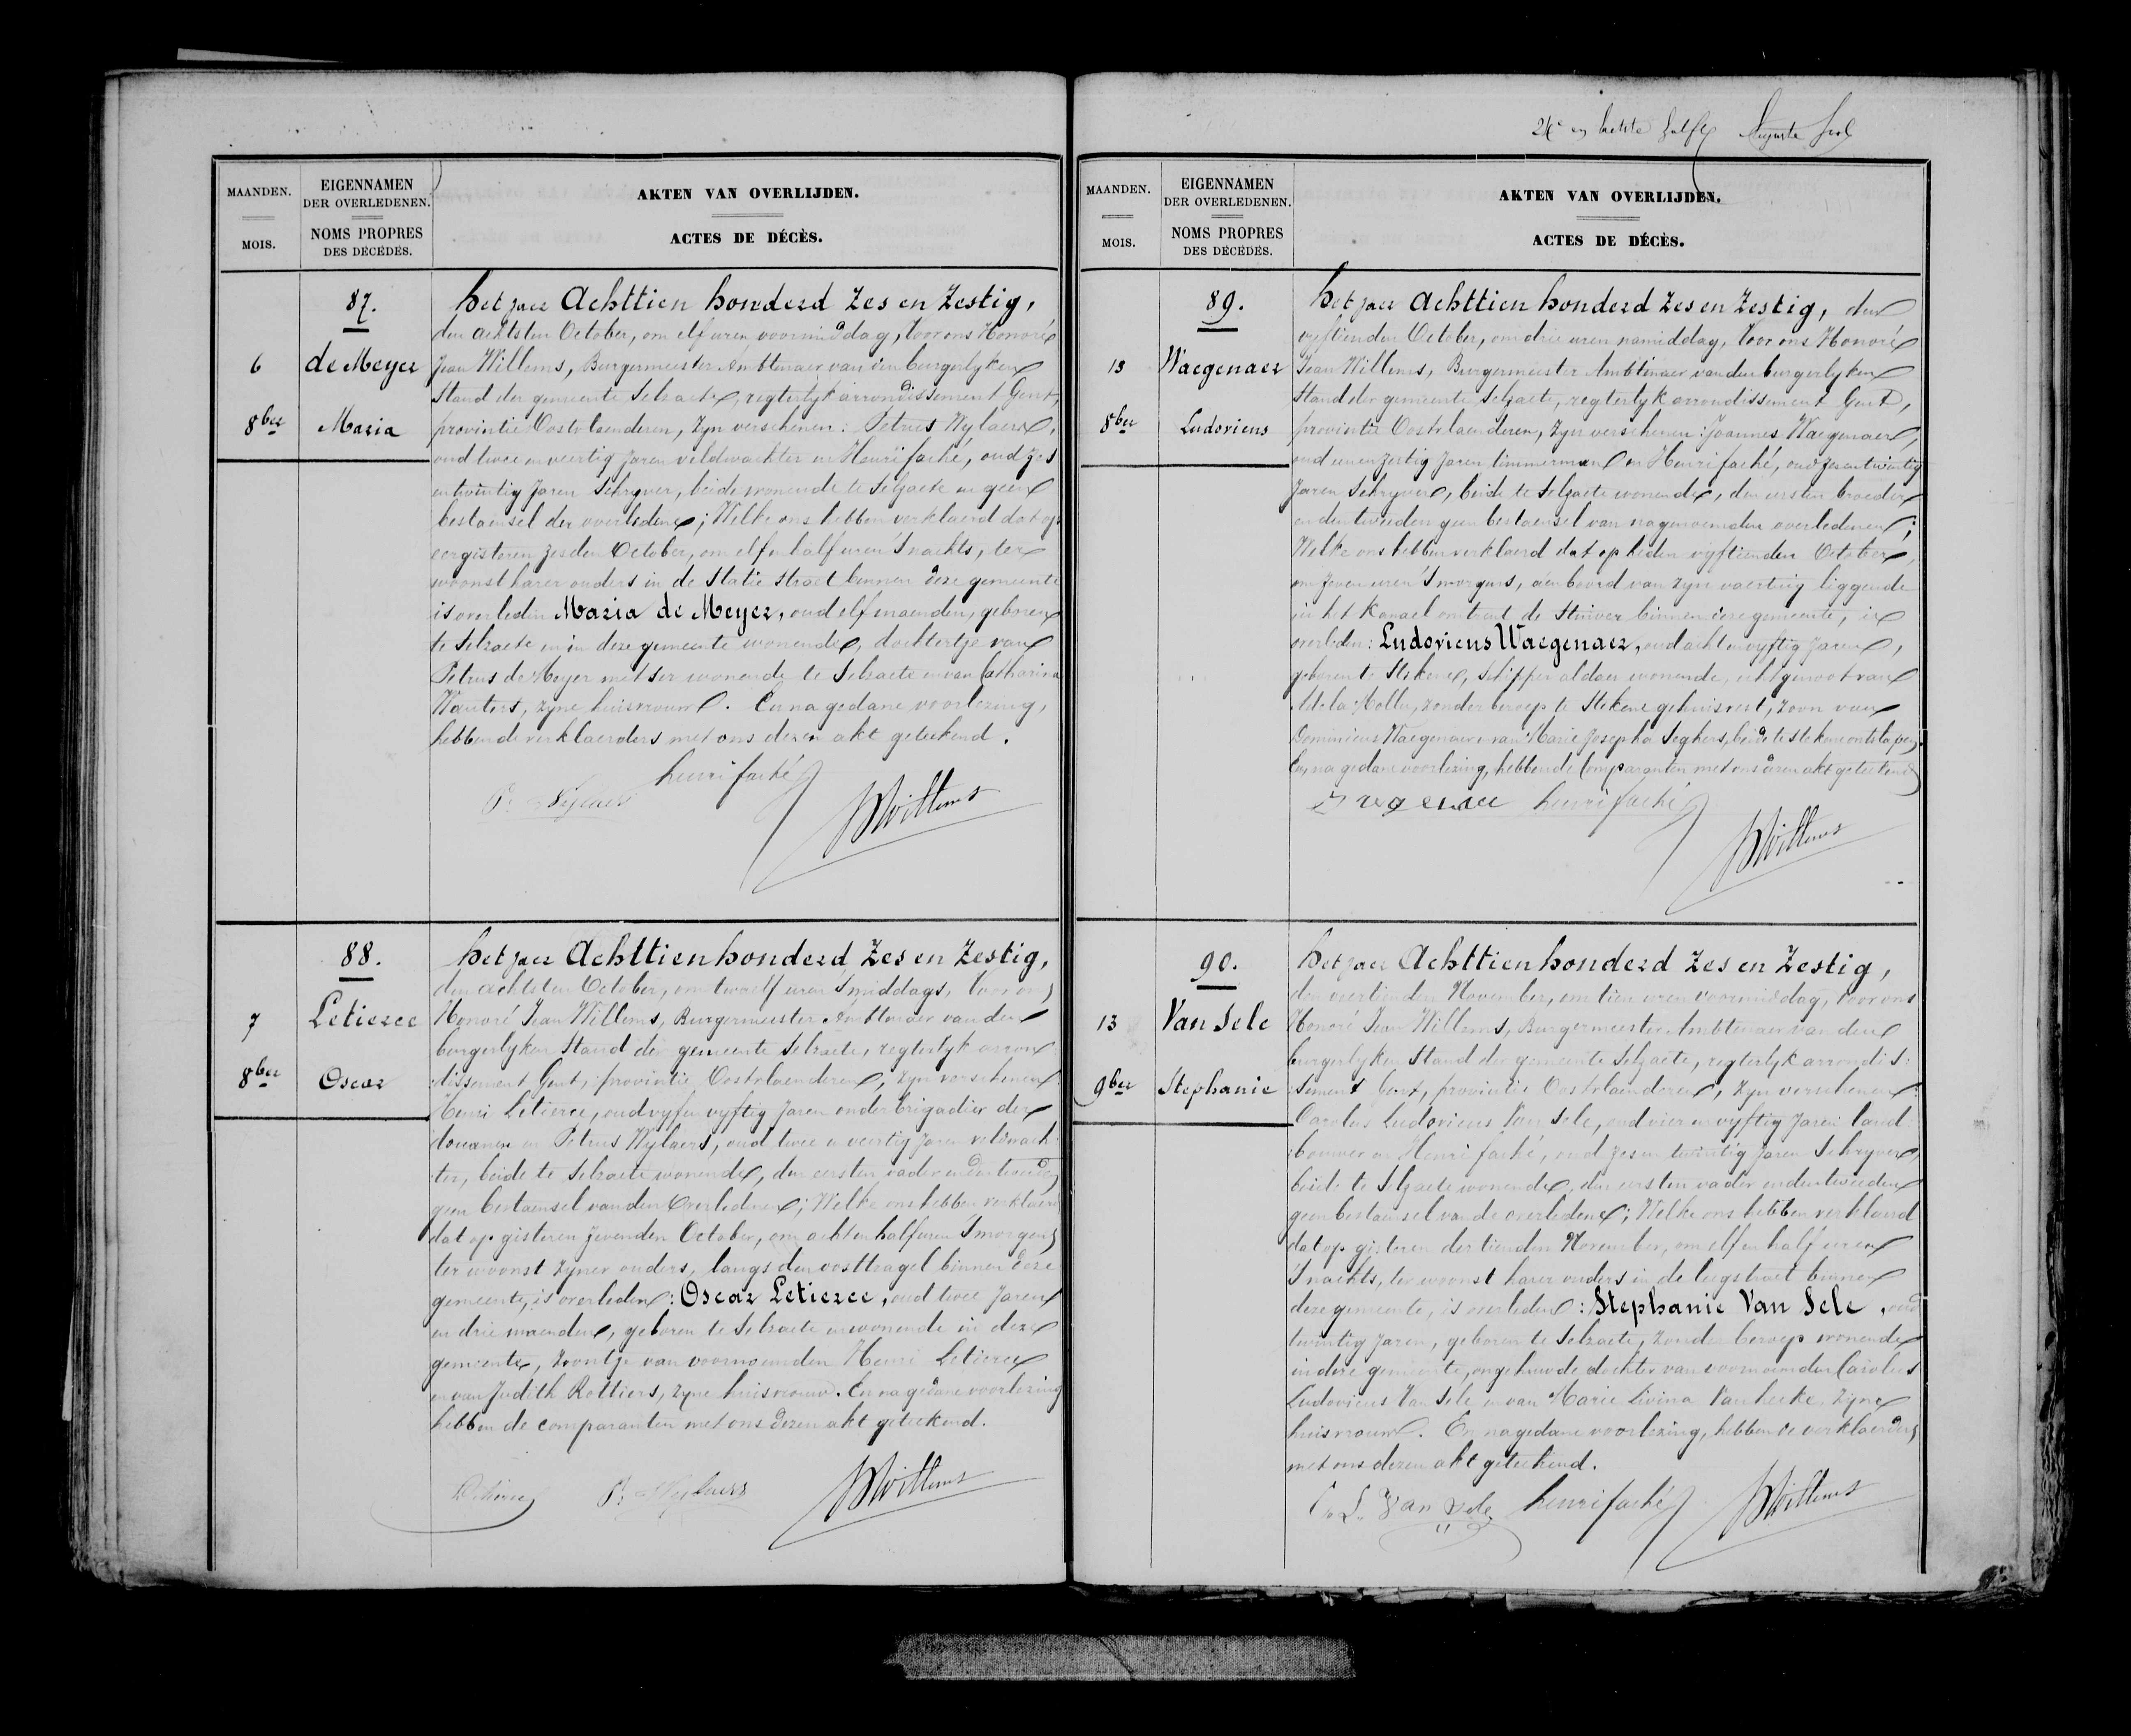 MAANDEN.
MOIS.
EIGENNAMEN
DER OVERLEDENEN.
NOMS PROPRES
DES DÉCÉDÉS.
AKTEN VAN OVERLIJDEN.
ACTES DE DÉCÈS.
87.
6
8ber
de Meyer
Maria
Het jaer Achttien honderd Zes en Zestig,
den achtsten October, om elf uren voormiddag, Voor ons Honoré
Jean Willems, Burgermeester Ambtenaer van den burgerlyken
Stand der gemeente Selzaete, regterlyk arrondissement Gent,
provintie Oostvlaenderen, zyn verschenen: Petrus Wylaers,
oud twee en veertig jaren veldwachter en Henri faché, oud zes
en twintig jaren Schryver, beide wonende te Selzaete en geen
bestaensel der overledene; Welke ons hebben verklaerd dat op
eergisteren zesden October, om elf en half uren 's nachts, ter
woonst harer ouders in de Statie straet binnen deze gemeente
is overleden Maria de Meyer, oud elf maenden, geboren
te Selzaete en in deze gemeente wonende, dochtertje van
Petrus de Meyer metser wonende te Selzaete en van Catharina
Wauters, zyne huisvrouw. En na gedane voorlezing,
hebben de verklaerders met ons dezen akt geteekend.
P. Wylaers henri faché HWillems
88.
7
8ber
Letierce
Oscar
Het jaer Achttien honderd Zes en Zestig,
den achtsten October, om twaelf uren 's middags, Voor ons
Honoré Jean Willems, Burgermeester Ambtenaer van den
burgerlyken Stand der gemeente Selzaete, regterlyk arron
dissement Gent, provintie Oostvlaenderen, zyn verschenen
Henri Letierce, oud vyf en vyftig jaren onderbrigadier der
douanen en Petrus Wylaers, oud twee en veertig jaren veldwach:
ter, beide te Selzaete wonende, den eersten vader en den tweeden
geen bestaensel van den Overledene; Welke ons hebben verklaerd
dat op gisteren zevenden October, om acht en half uren 's morgens
ter woonst zyner ouders, langs den oosttragel binnen deze
gemeente, is overleden: Oscar Letierce, oud twee jaren
en drie maenden, geboren te Selzaete en wonende in deze
gemeente, zoontje van voornoemden Henri Letierce
en van Judith Rottiers, zyne huisvrouw. En na gedane voorlezing
hebben de comparanten met ons dezen akt geteekend.
Letierce P. Wylaers HWillems
2de en laetste
MAANDEN.
MOIS.
EIGENNAMEN
DER OVERLEDENEN.
NOMS PROPRES
DES DÉCÉDÉS.
AKTEN VAN OVERLIJDEN.
ACTES DE DÉCÈS.
89.
15
8ber
Waegenaer
Ludovicus
Het jaer Achttien honderd Zes en Zestig, den
vyftienden October, om drie uren namiddag, Voor ons Honoré
Jean Willems, Burgermeester Ambtenaer van den burgerlyken
Stand der gemeente Selzaete, regterlyk arrondissement Gent,
provintie Oostvlaenderen, zyn verschenen: Joannes Waegenaer,
oud een en zestig jaren timmerman en Henri faché, oud zes en twintig
jaren Schryver, beide te Selzaete wonende, den eersten broeder
en den tweeden geen bestaensel van nagenoemden overledenen;
Welke ons hebben verklaerd dat op heden vyftienden October,
om zeven uren 's morgens, aen boord van zyn vaertuig liggende
in het Kanael omtrent de Stuiver binnen deze gemeente, is
overleden: Ludovicus Waegenaer, oud acht en vyftig jaren,
geboren te Stekene, Schipper aldaer wonende, echtgenoot van
Adela Mollu, zonder beroep te Stekene gehuisvest, zoon van
Dominicus Waegenaer en van Marie Josepha Seghers, beide te Stekene ontslapen.
En, na gedane voorlezing, hebben de Comparanten met ons dezen akt geteekend
henri faché HWillems
90.
13
9ber
Van Sele
Stephanie
Het jaer Achttien honderd Zes en Zestig,
den veertienden November, om tien uren voormiddag, Voor ons
Honoré Jean Willems, Burgermeester Ambtenaer van den
burgerlyken Stand der gemeente Selzaete, regterlyk arrondis:
sement Gent, provintie Oostvlaenderen, zyn verschenen:
Carolus Ludovicus Van Sele, oud vier en vyftig jaren land:
bouwer en Henri faché, oud zes en twintig jaren Schryver,
beide te Selzaete wonende, den eersten vader en den tweeden
geen bestaensel van de overledene; Welke ons hebben verklaerd
dat op gisteren dertienden November, om elf en half uren
's nachts, ter woonst harer ouders in de leegstraet binnen
deze gemeente, is overleden: Stephanie Van Sele, oud
twintig jaren, geboren te Selzaete, zonder beroep wonende
in deze gemeente, ongehuwde dochter van voornoemden Carolus
Ludovicus Van Sele en van Marie Livina Vanhecke, zyne
huisvrouw. En na gedane voorlezing, hebben de verklaerders
met ons dezen akt geteekend.
C. L. Van Sele henri faché HWillems